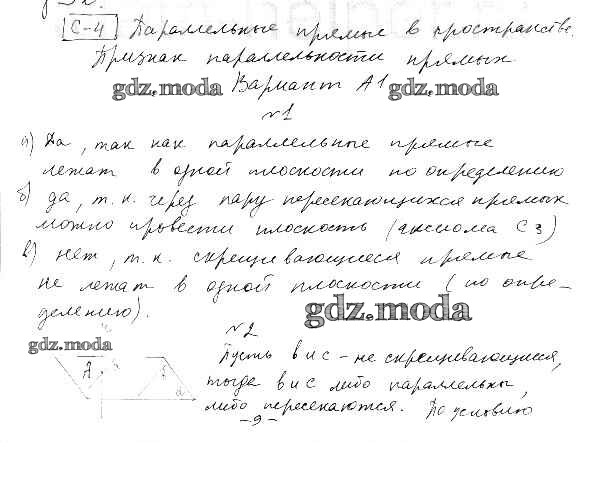 С-4 Параллельные прямые в пространстве.
Признак параллельности прямых
gdz.moda Вариант А1 gdz.moda
№1
а) Да, так как параллельные прямые
лежат в одной плоскости по определению
б) да, т.к. через пару пересекающихся прямых
можно провести плоскость (аксиома С3)
в) нет, т.к. скрещивающиеся прямые
не лежат в одной плоскости (по опре-
делению).
gdz.moda
№2
gdz.moda
Пусть в и с - не скрещивающиеся,
A
тогда в и с либо параллельны,
либо пересекаются. По условию
-9-